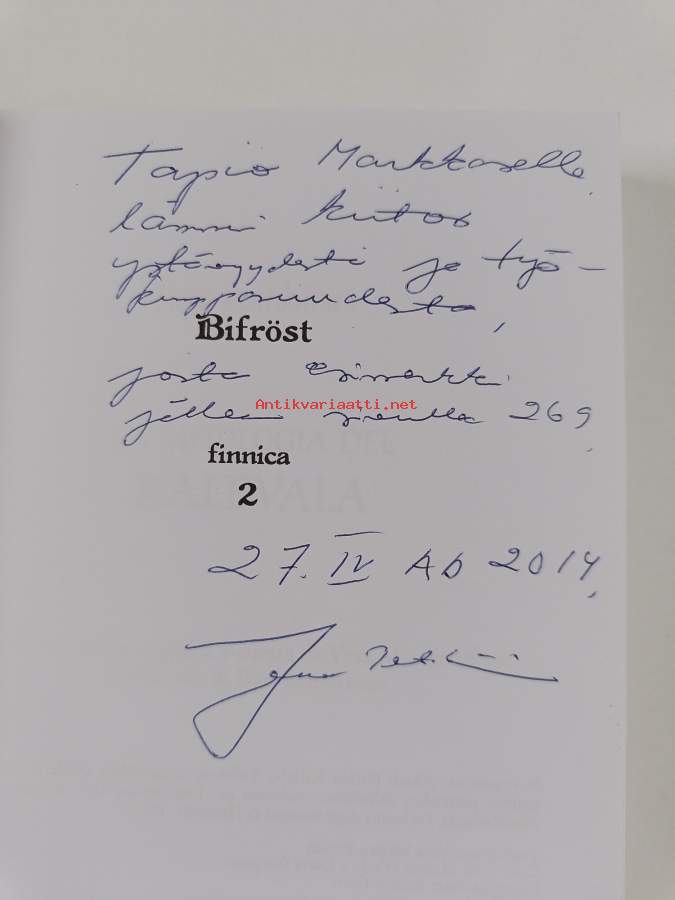 Tapio Markkaselle
lämmin kiitos
ystävyydestä ja työ-
kumppanuudesta,
Bifröst
josta esimerkki
Antikvariaatti.net
jälleen sivulla 269.
finnica
2
27. IV AD 2014,